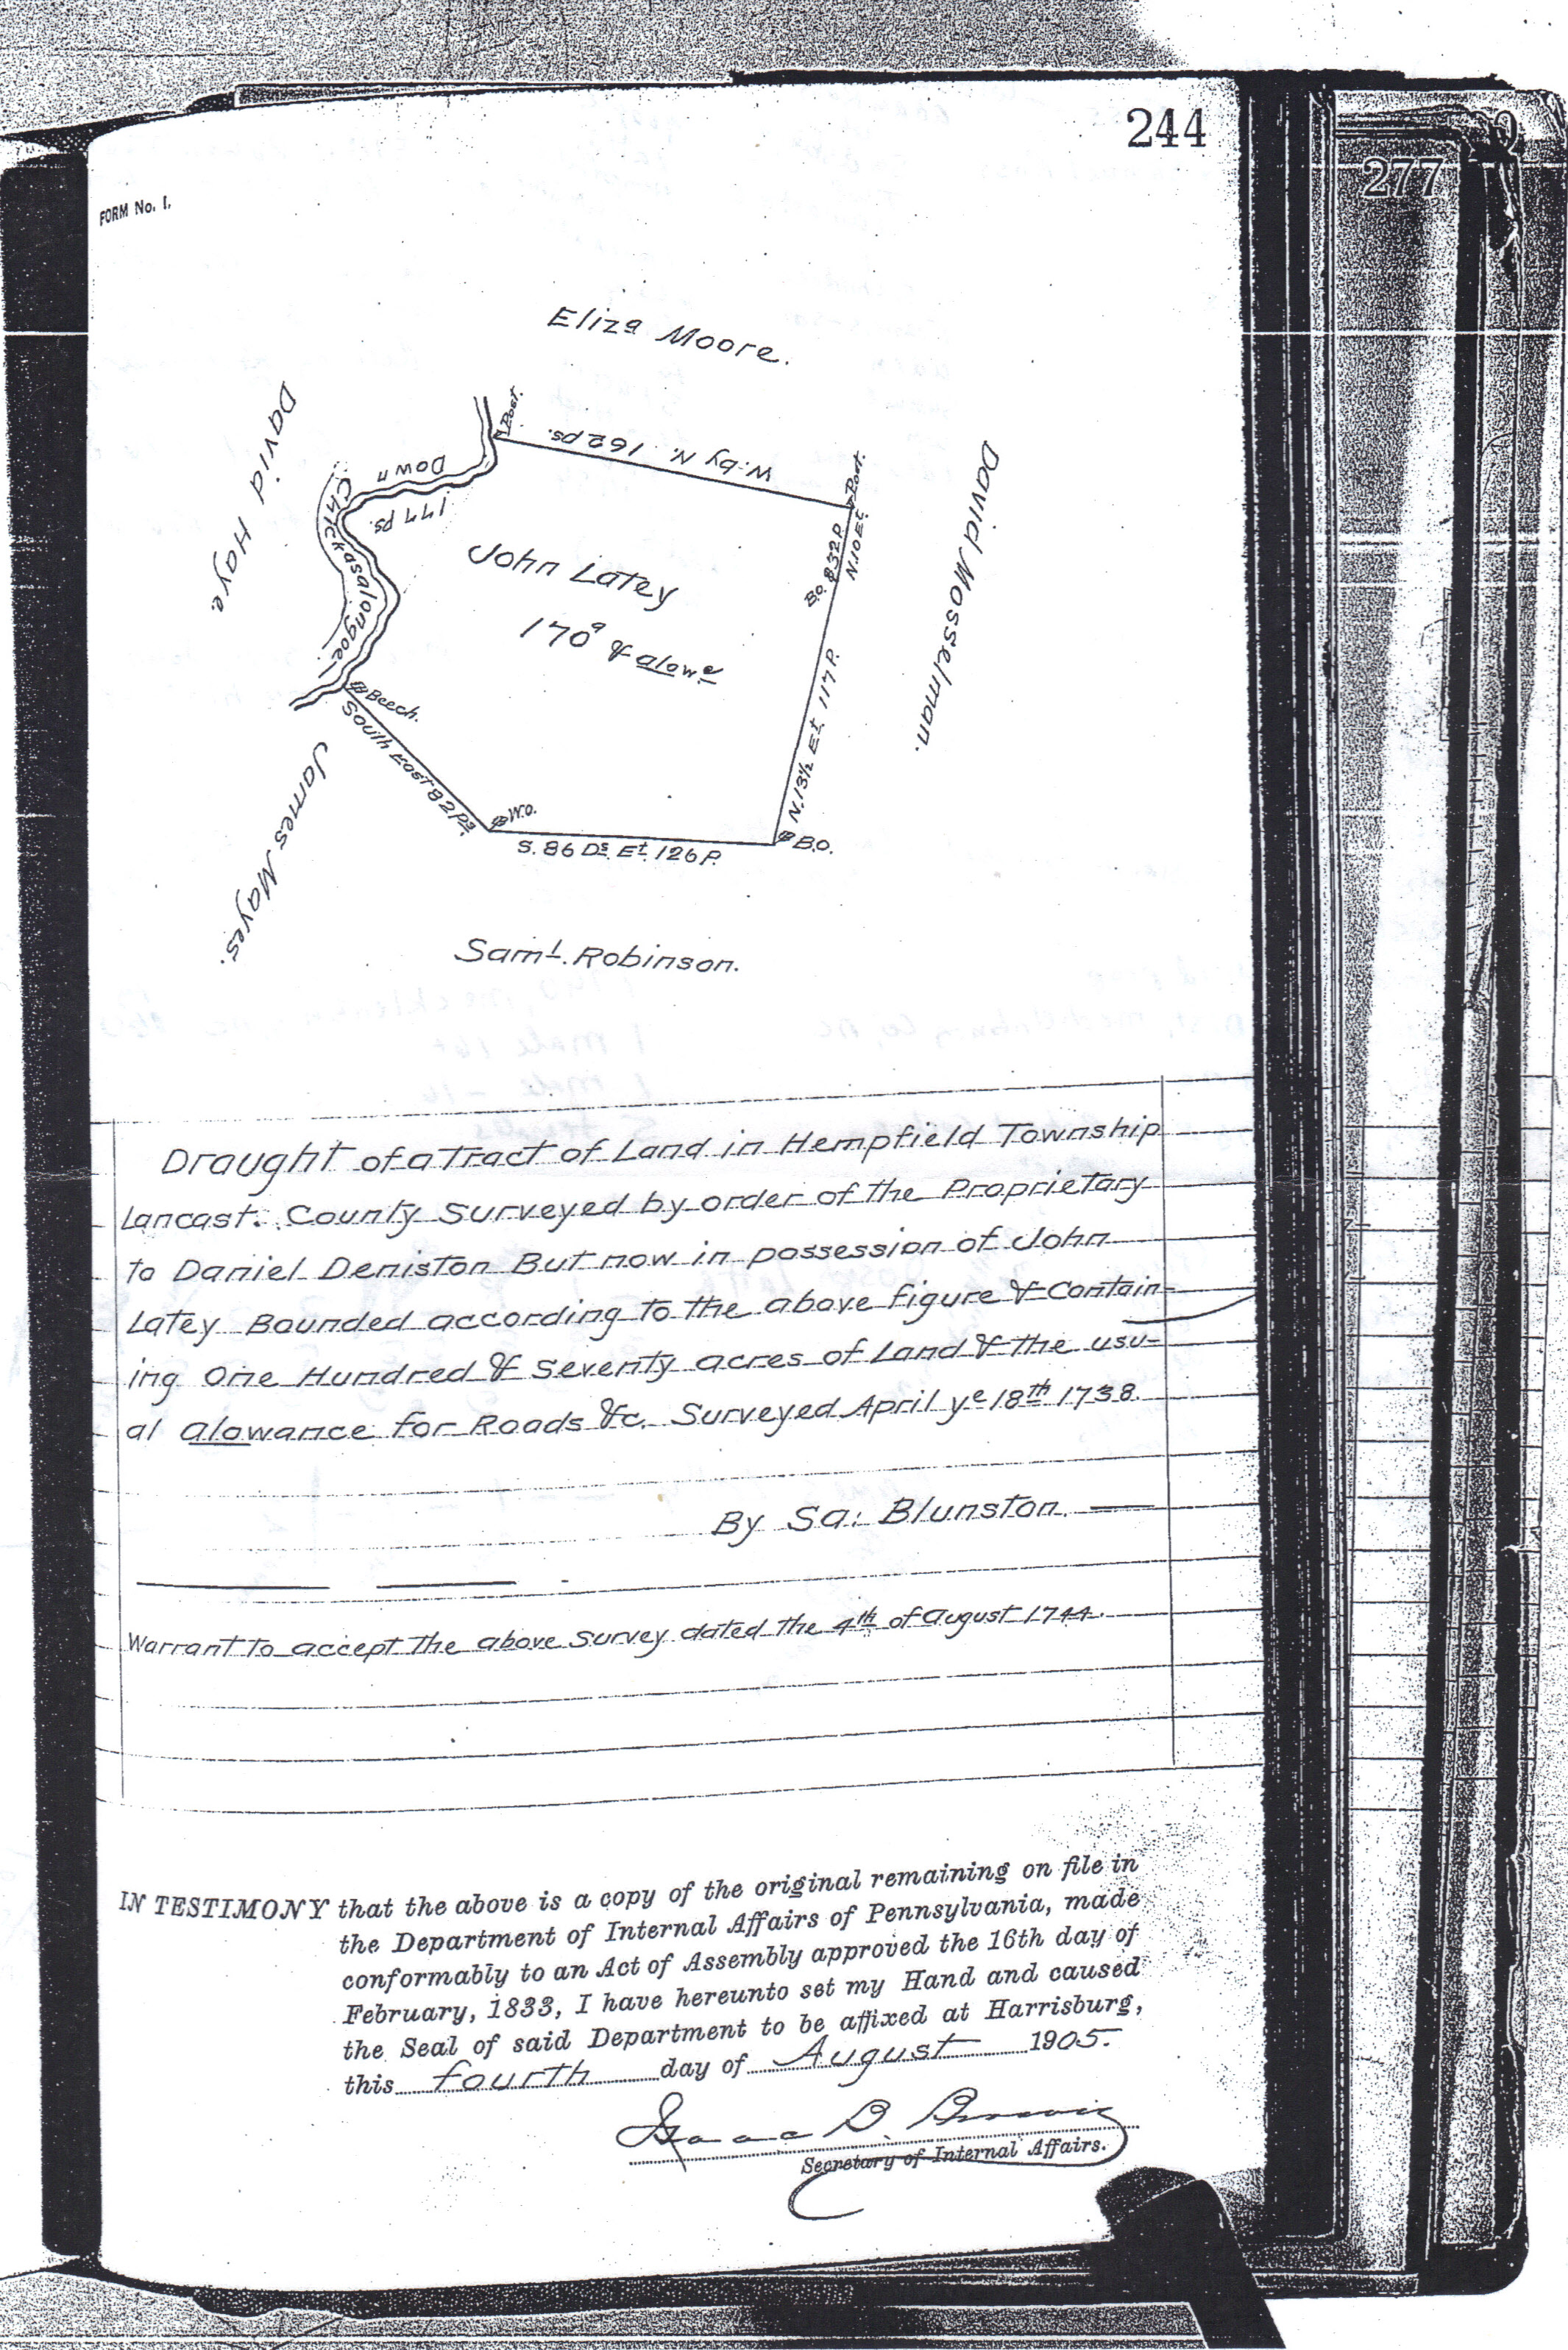 244
277
FORM No. 1.
Eliza Moore.
David Haye.
David Mosselman.
Post.
W. by N. 162 ps.
Post.
Down
177 ps.
Chickasalongoe
John Latey
170a & alowe
Bo. 832P.
N.10 Et
N.13½ Et. 117 P.
Beech.
South East 82 Ps.
W.o.
S. 86 Ds. Et. 126 P.
B.O.
James Mayes.
Saml. Robinson.
Draught of a Tract of Land in Hempfield Township
Lancast. County Surveyed by order of the Proprietary
to Daniel Deniston But now in possession of John
Latey Bounded according to the above figure & Contain-
ing One Hundred & Seventy acres of Land & the usu-
al alowance for Roads &c. Surveyed April ye 18th 1738.
By Sa: Blunston.
Warrant to accept the above survey dated the 4th of august 1744.
IN TESTIMONY that the above is a copy of the original remaining on file in
the Department of Internal Affairs of Pennsylvania, made
conformably to an Act of Assembly approved the 16th day of
February, 1833, I have hereunto set my Hand and caused
the Seal of said Department to be affixed at Harrisburg,
this fourth day of August 1905.
Isaac B. Brown
Secretary of Internal Affairs.